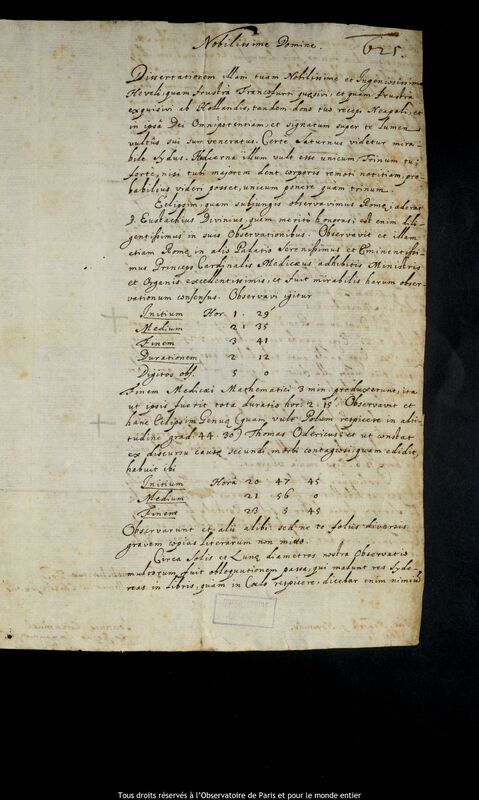 Nobilissime Domine.
625.
Dissertationem illam tuam Nobilissime et Ingeniosissime
Heveli, quam frustra Francofurti quæsivi, et quam frustra
exquisivi ab Hollandis, tandem dono tuo recepi Neapoli, et
in ipsa Dei Omnipotentiam, et signatum super te lumen
vultus sui sum veneratus. Certe Saturnus videtur mira-
bile sydus. Hodierna illum vult esse unicum Trinum tu;
forte, nisi tubi majorem dent corporis remoti notitiam, pro-
babilius videri posset, unicum ponere quam trinum.
Eclipsim, quam subjungis observavimus Romæ; aderat
P. Eustachius Divinius, quem merito honoras: est enim dili-
gentissimus in suis Observationibus. Observavit et illam
etiam Romæ in alio Palatio Serenissimus et Eminentissi-
mus Princeps Cardinalis Mediceus adhibitis Ministris
et Organis excellentissimis, et fuit mirabilis harum obser-
vationum consensus. Observavi igitur
Initium Hor 1 . 29
Medium 2 : 35
Finem 3 41
Durationem 2 12
Digitos obs. 5 0
Finem Medicæi Mathematici 3 min. produxerunt, ita
ut ipsis fuerit tota duratio hor: 2. 15'. Observavit et
hanc Eclipsim Genuæ (quam vult Polum respicere in alti-
tudine grad. 44. 30) Thomas Odericus, et ut constat
ex discursu causæ secundi morbi contagiosi, quam edidit,
habuit ibi
Initium Hora 20 47 45
Medium 21 56 0
Finem 23 3 45
Observarunt et alii alibi: sed ne te foliis diversis
gravem copias literarum non mitto.
Circa Solis et Lunæ diametros nostra Observatio
multorum fuit obloquutionem passa, qui malunt res syde-
reas in libris, quam in Cœlo respicere; dicebar enim nimius
Tous droits réservés à l'Observatoire de Paris et pour le monde entier